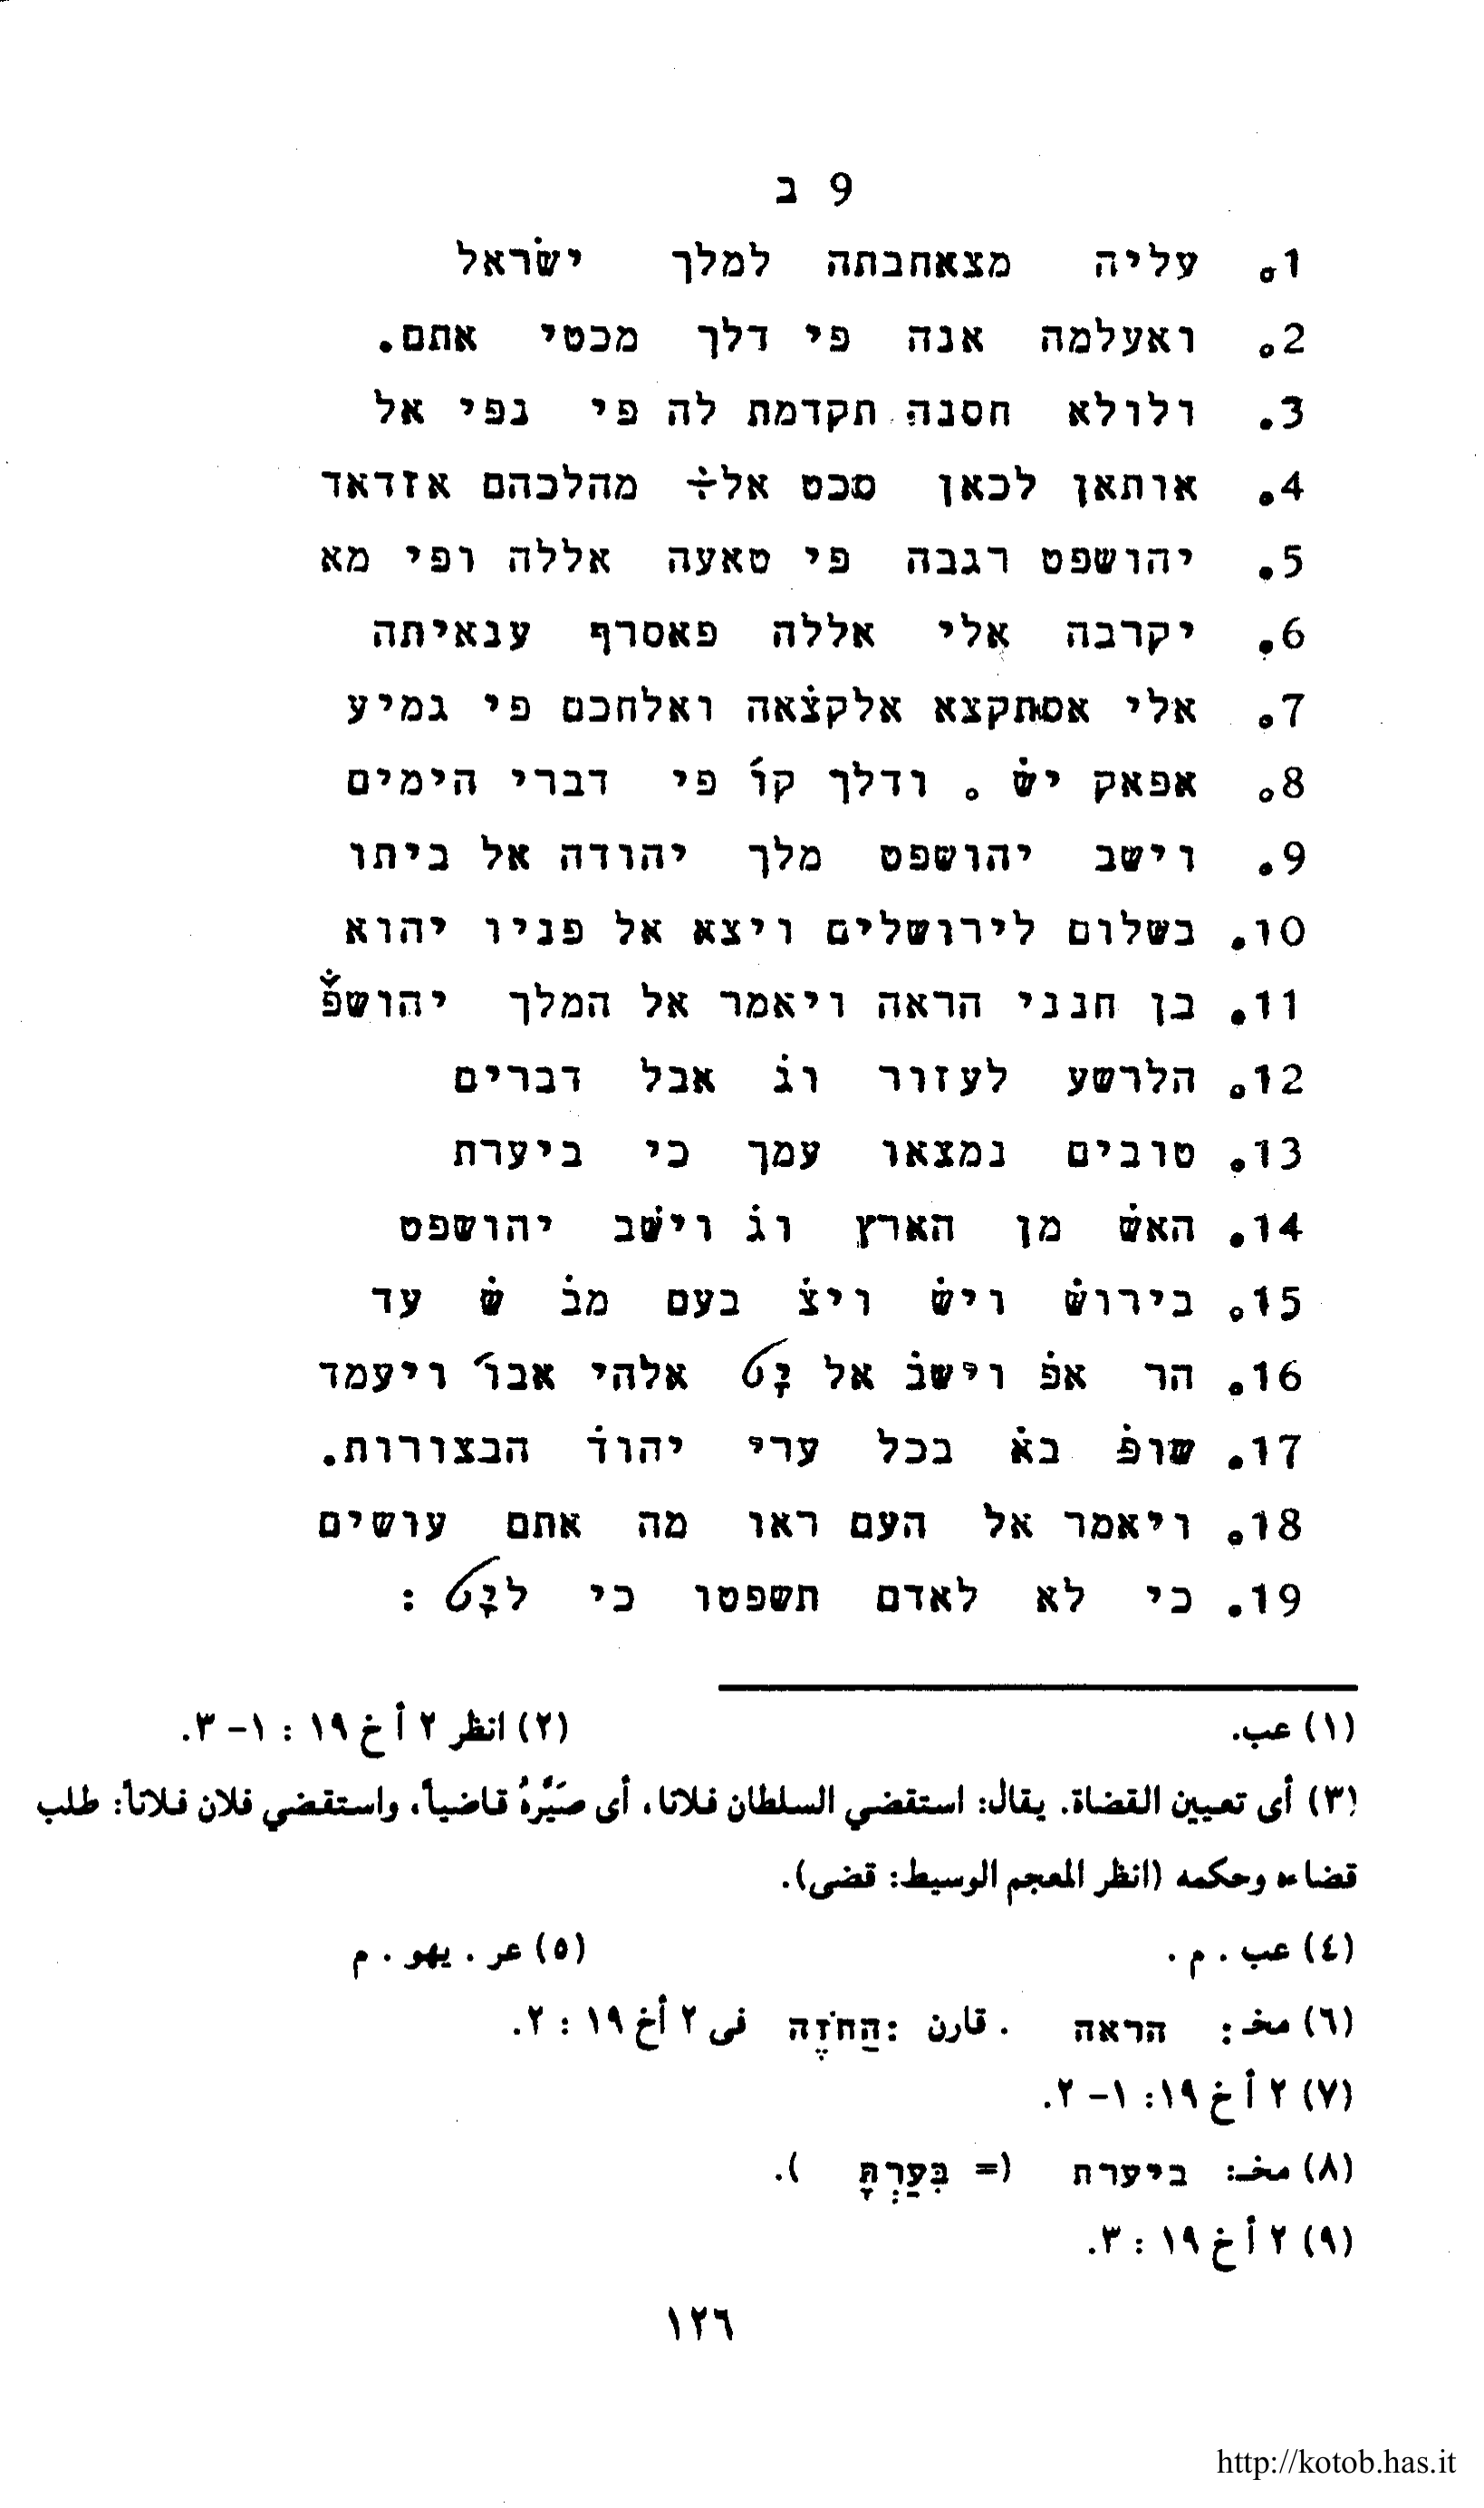 9 ב
1. עליה מצאחבתה למלך ישׂראל
2. ואעלמה אנה פי דלך מכטי אתם.
3. ולולא חסנה תקדמת לה פי נפי אל
4. אותאן לכאן סכט אל÷ מהלכהם אזדאד
5. יהושפט רגבה פי טאעה אללה ופי מא
6. יקרבה אלי אללה פאסרף ענאיתה
7. אלי אסתקצא אלקצ̇אה ואלחכם פי גמיע
8. אפאק יש̇ . ודלך קו׳ פי דברי הימים
9. וישב יהושפט מלך יהודה אל ביתו
10. בשלום לירושלים ויצא אל פניו יהוא
11. בן חנני הראה ויאמר אל המלך יהושפ̇
12. הלרשע לעזור וג̇ אבל דברים
13. טובים נמצאו עמך כי ביערת
14. האש̇ מן הארץ וג̇ ויש̇ב יהושפט
15. בירוש̇ ויש̇ ויצ̇ בעם מב̇ ש̇ עד
16. הר אפ̇ וישב̇ אל אלהי אבו׳ ויעמד
17. שופ̇ בא̇ בכל ערי יהוד̇ הבצורות.
18. ויאמר אל העם ראו מה אתם עושים
19. כי לא לאדם תשפטו כי :
(١) عب.
(٢) انظر ٢ أخ ١٩ : ١ – ٣.
(٣) أى تعيين القضاة. يقال: استقضي السلطان فلانا، أى صَيَّرهُ قاضياً، واستقضي فلان فلاناً: طلب
قضاءه وحكمه (انظر المعجم الوسيط: قضى).
(٤) عب . م .
(٥) عر . يهو . م
(٦) مخـ: הראה . قارن : הַחֹזֶה فى ٢ أخ ١٩ : ٢.
(٧) ٢ أخ ١٩: ١ – ٢.
(٨) مخـ: ביערת (= בִּעַרְתָּ ).
(٩) ٢ أخ ١٩ : ٣.
١٢٦
http://kotob.has.it